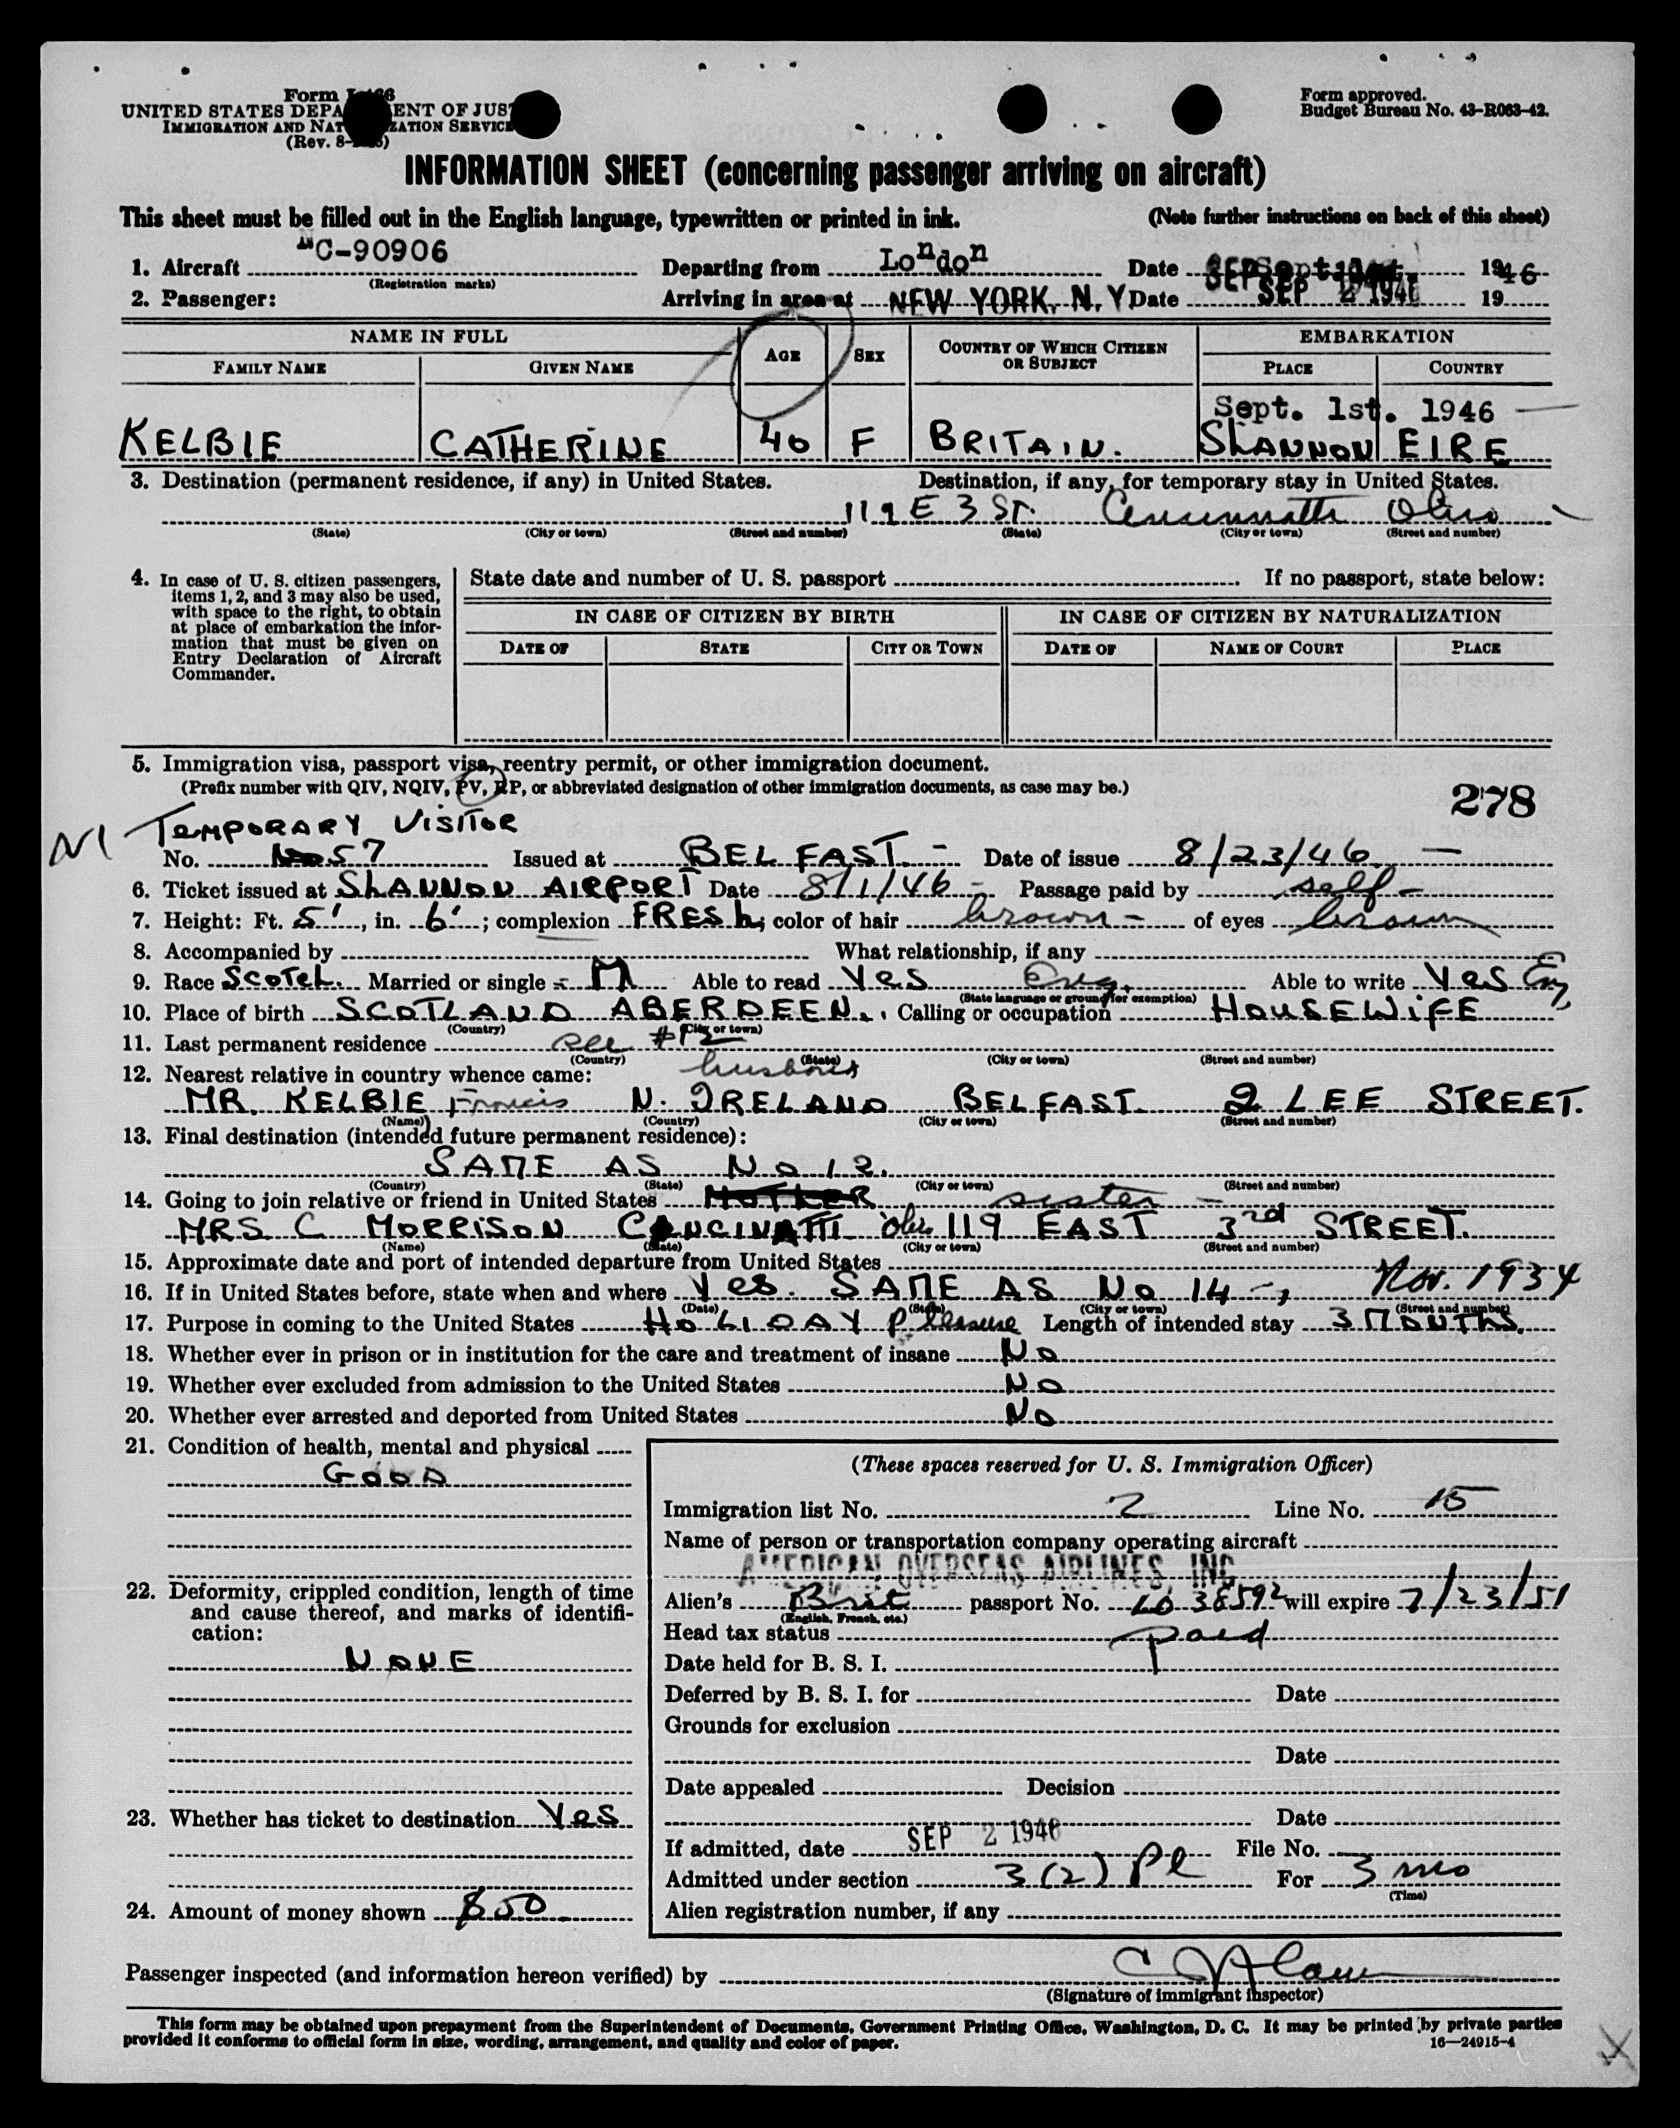 Form I-466
UNITED STATES DEPARTMENT OF JUSTICE
IMMIGRATION AND NATURALIZATION SERVICE
(Rev. 8-
Form approved.
Budget Bureau No. 43-R063-42.
INFORMATION SHEET (concerning passenger arriving on aircraft)
This sheet must be filled out in the English language, typewritten or printed in ink. (Note further instructions on back of this sheet)
1. Aircraft NC-90906 Departing from London Date Sept. 1946
(Registration marks)
2. Passenger: Arriving in area at NEW YORK, N. Y. Date SEP 2 1946 19
NAME IN FULL AGE SEX COUNTRY OF WHICH CITIZEN OR SUBJECT EMBARKATION
FAMILY NAME GIVEN NAME PLACE COUNTRY
Sept. 1st. 1946
KELBIE CATHERINE 40 F BRITAIN. SHANNON EIRE
3. Destination (permanent residence, if any) in United States. Destination, if any, for temporary stay in United States.
119 E 3 ST. Cincinnatti Ohio
(State) (City or town) (Street and number) (State) (City or town) (Street and number)
4. In case of U. S. citizen passengers,
items 1, 2, and 3 may also be used,
with space to the right, to obtain
at place of embarkation the infor-
mation that must be given on
Entry Declaration of Aircraft
Commander.
State date and number of U. S. passport If no passport, state below:
IN CASE OF CITIZEN BY BIRTH IN CASE OF CITIZEN BY NATURALIZATION
DATE OF STATE CITY OR TOWN DATE OF NAME OF COURT PLACE
5. Immigration visa, passport visa, reentry permit, or other immigration document.
(Prefix number with QIV, NQIV, PV, RP, or abbreviated designation of other immigration documents, as case may be.)
278
NI TEMPORARY VISITOR
No. 57 Issued at BELFAST. - Date of issue 8/23/46 -
6. Ticket issued at SHANNON AIRPORT Date 8/1/46 - Passage paid by self -
7. Height: Ft. 5', in. 6'; complexion FRESh; color of hair brown - of eyes brown
8. Accompanied by What relationship, if any
9. Race SCOTCH. Married or single - M Able to read YES Eng. Able to write YES Eng
(State language or ground for exemption)
10. Place of birth SCOTLAND ABERDEEN. Calling or occupation HOUSEWIFE
(Country) (City or town)
11. Last permanent residence see #12
(Country) (State) (City or town) (Street and number)
12. Nearest relative in country whence came: husband
MR. KELBIE Francis N. IRELAND BELFAST. 2 LEE STREET.
(Name) (Country) (City or town) (Street and number)
13. Final destination (intended future permanent residence):
SAME AS No 12.
(Country) (State) (City or town) (Street and number)
14. Going to join relative or friend in United States MOTHER sister -
MRS C MORRISON CINCINATTI Ohio 119 EAST 3rd STREET.
(Name) (State) (City or town) (Street and number)
15. Approximate date and port of intended departure from United States
16. If in United States before, state when and where Yes. SAME AS No 14 -, Nov. 1934
(Date) (State) (City or town) (Street and number)
17. Purpose in coming to the United States HOLIDAY Pleasure Length of intended stay 3 MONTHS.
18. Whether ever in prison or in institution for the care and treatment of insane No
19. Whether ever excluded from admission to the United States No
20. Whether ever arrested and deported from United States No
21. Condition of health, mental and physical
GOOD
22. Deformity, crippled condition, length of time
and cause thereof, and marks of identifi-
cation:
NONE
23. Whether has ticket to destination Yes
24. Amount of money shown $50
(These spaces reserved for U. S. Immigration Officer)
Immigration list No. 2 Line No. 15
Name of person or transportation company operating aircraft
AMERICAN OVERSEAS AIRLINES, INC
Alien's Brit passport No. LO 38592 will expire 7/23/51
(English, French, etc.)
Head tax status paid
Date held for B. S. I.
Deferred by B. S. I. for Date
Grounds for exclusion
Date
Date appealed Decision
Date
If admitted, date SEP 2 1946 File No.
Admitted under section 3(2) Pl For 3 mo
(Time)
Alien registration number, if any
Passenger inspected (and information hereon verified) by
(Signature of immigrant inspector)
This form may be obtained upon prepayment from the Superintendent of Documents, Government Printing Office, Washington, D. C. It may be printed by private parties
provided it conforms to official form in size, wording, arrangement, and quality and color of paper.
16—24915-4